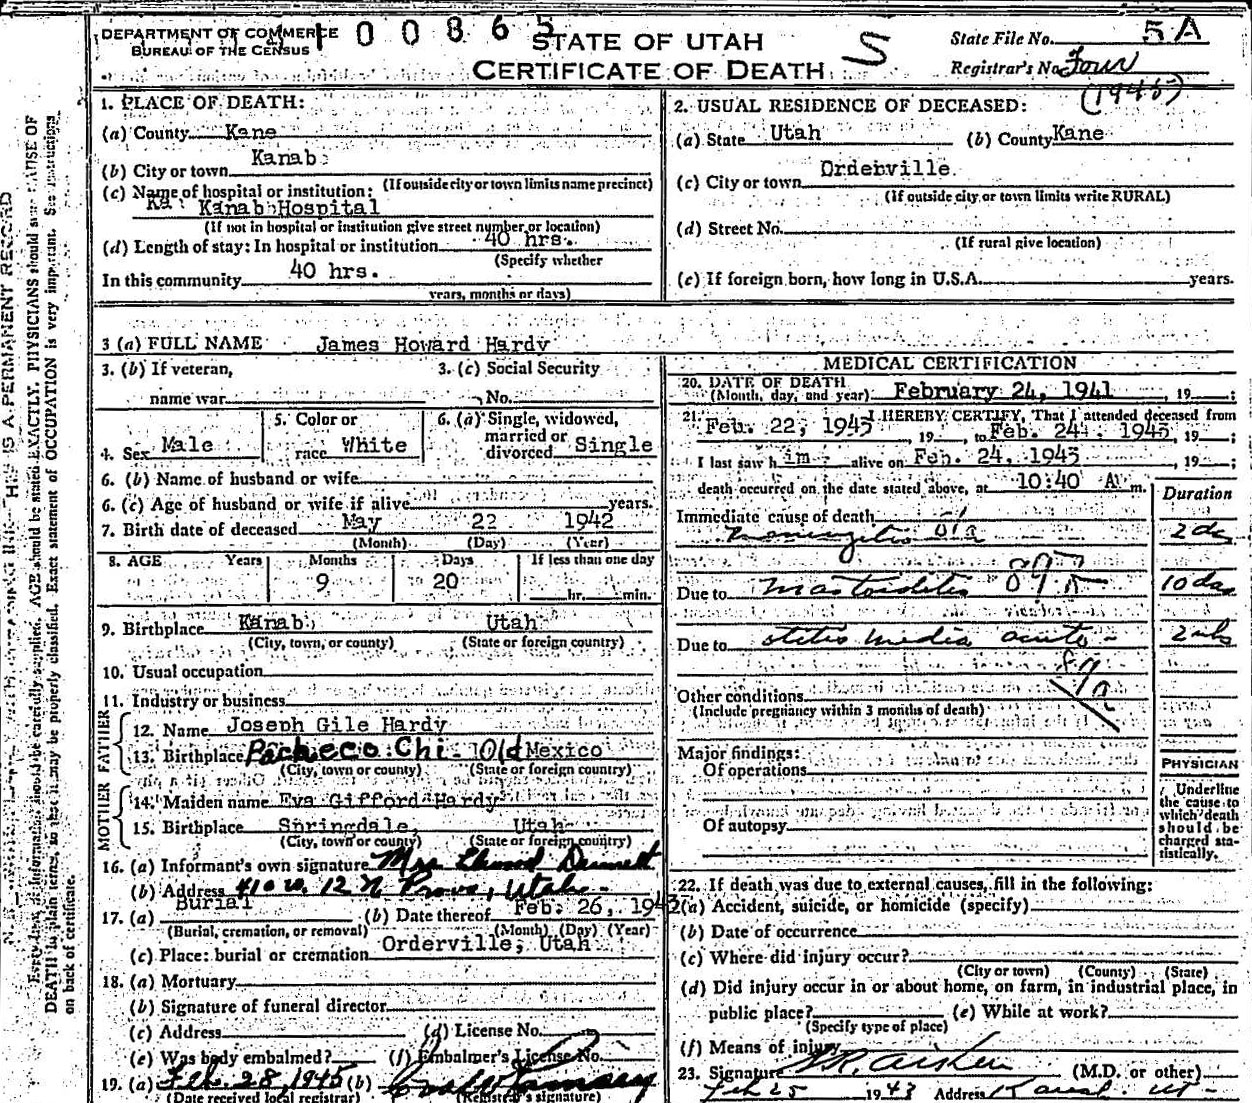 DEPARTMENT OF COMMERCE
BUREAU OF THE CENSUS
0 0 8 6 5
STATE OF UTAH
CERTIFICATE OF DEATH
S
State File No. 5A
Registrar's No. Four
(1945)
1. PLACE OF DEATH:
(a) County Kane
(b) City or town Kanab
(If outside city or town limits name precinct)
(c) Name of hospital or institution:
Ka Kanab Hospital
(If not in hospital or institution give street number or location)
(d) Length of stay: In hospital or institution 40 hrs.
(Specify whether
In this community 40 hrs.
years, months or days)
2. USUAL RESIDENCE OF DECEASED:
(a) State Utah (b) County Kane
(c) City or town Orderville
(If outside city or town limits write RURAL)
(d) Street No.
(If rural give location)
(e) If foreign born, how long in U.S.A. years.
3 (a) FULL NAME James Howard Hardy
3. (b) If veteran,
name war
3. (c) Social Security
No.
4. Sex Male
5. Color or
race White
6. (a) Single, widowed,
married or
divorced Single
6. (b) Name of husband or wife
6. (c) Age of husband or wife if alive years.
7. Birth date of deceased May 22 1942
(Month) (Day) (Year)
8. AGE Years Months Days If less than one day
9 20 hr. min.
9. Birthplace Kanab Utah
(City, town, or county) (State or foreign country)
10. Usual occupation
11. Industry or business
FATHER
12. Name Joseph Gile Hardy
13. Birthplace Pacheco Chi. Old Mexico
(City, town or county) (State or foreign country)
MOTHER
14. Maiden name Eva Gifford Hardy
15. Birthplace Springdale, Utah
(City, town or county) (State or foreign country)
16. (a) Informant's own signature Mrs
(b) Address 410 W. 12 N Provo, Utah
17. (a) Burial (b) Date thereof Feb. 26, 1943
(Burial, cremation, or removal) (Month) (Day) (Year)
(c) Place: burial or cremation Orderville, Utah
18. (a) Mortuary
(b) Signature of funeral director
(c) Address (d) License No.
(e) Was body embalmed? (f) Embalmer's License No.
19. (a) Feb. 28, 1945 (b)
(Date received local registrar) (Registrar's signature)
MEDICAL CERTIFICATION
20. DATE OF DEATH
(Month, day, and year) February 24, 1941, 19 ;
21. I HEREBY CERTIFY, That I attended deceased from
Feb. 22, 1943, 19 , to Feb. 24, 1943, 19 ;
I last saw him alive on Feb. 24, 1943, 19 ;
death occurred on the date stated above, at 10:40 A m.
Duration
Immediate cause of death
81a 2 da
895
Due to Mastoiditis 10 das
Due to otitis media acute
87a
Other conditions
(Include pregnancy within 3 months of death)
Major findings:
Of operations
Of autopsy
PHYSICIAN
Underline
the cause to
which death
should be
charged sta-
tistically.
22. If death was due to external causes, fill in the following:
(a) Accident, suicide, or homicide (specify)
(b) Date of occurrence
(c) Where did injury occur?
(City or town) (County) (State)
(d) Did injury occur in or about home, on farm, in industrial place, in
public place? (e) While at work?
(Specify type of place)
(f) Means of injury
23. Signature R. Aiken (M.D. or other)
Feb 25 1943 Address Kanab Ut
HIS IS A PERMANENT RECORD
AGE should be stated EXACTLY. PHYSICIANS should state CAUSE OF
DEATH in plain terms, so that it may be properly classified. Exact statement of OCCUPATION is very important. See instructions
on back of certificate.